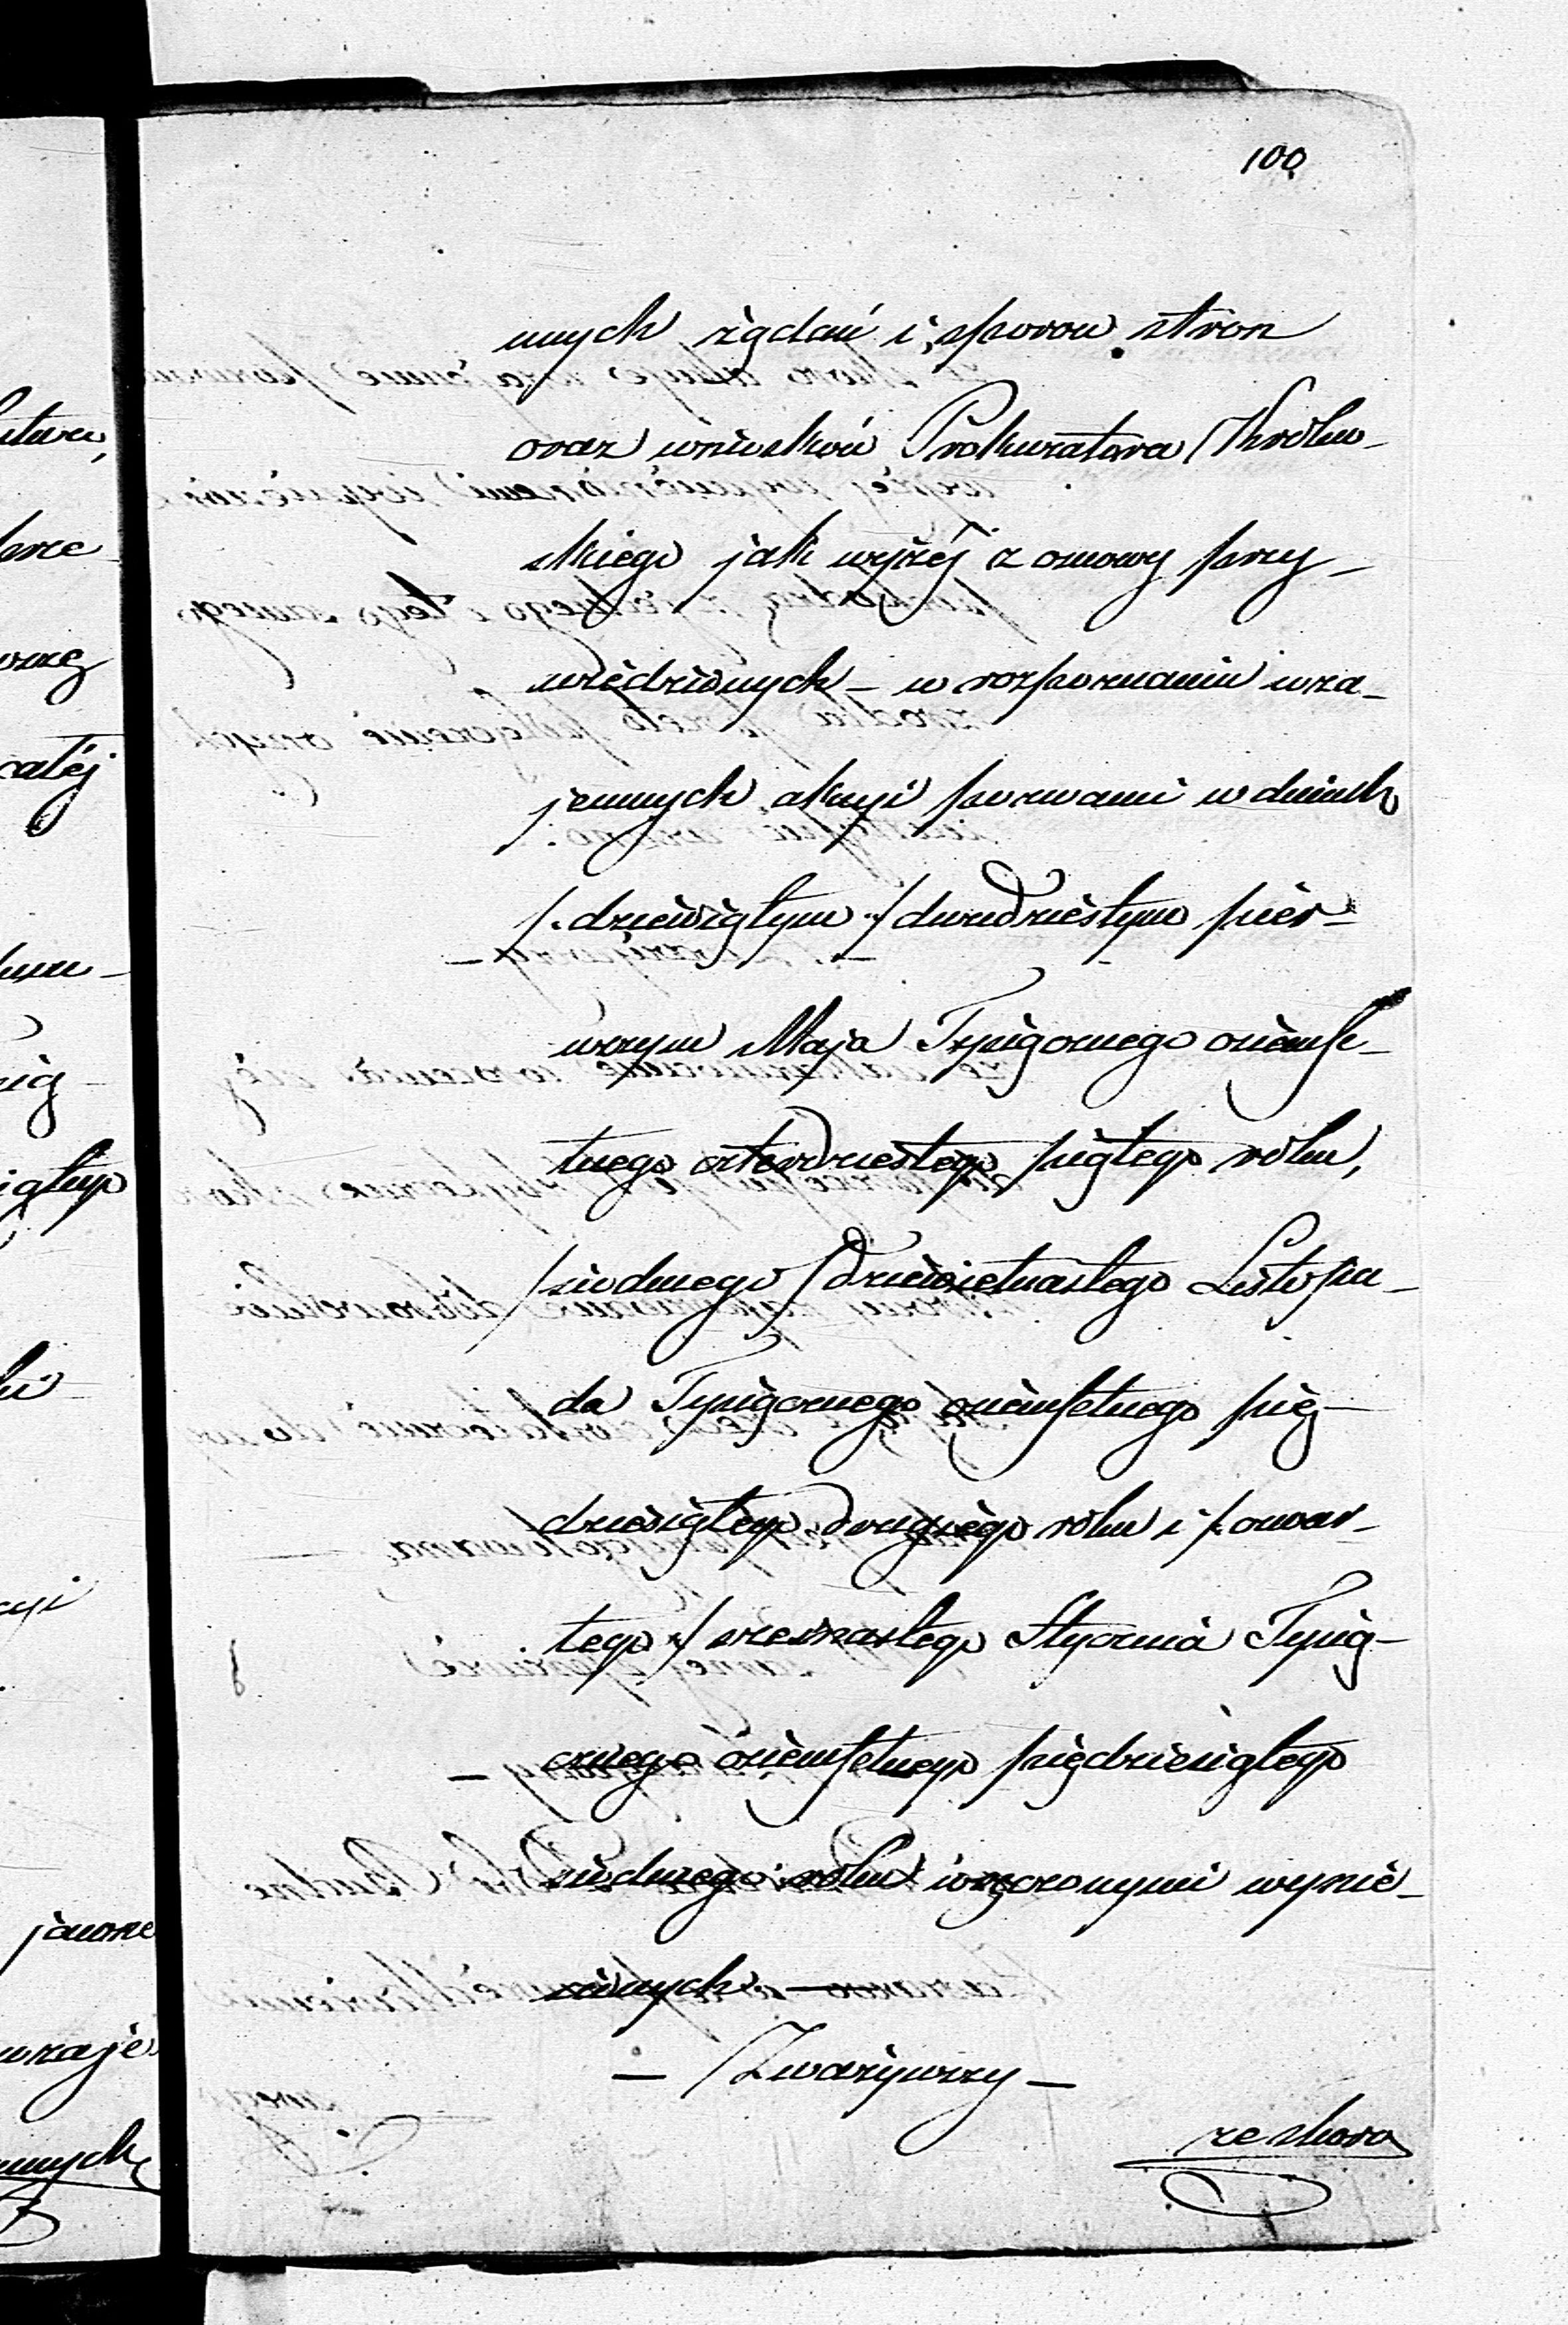 100
mnych żądań i sporów stron
oraz wniosków Prokuratora Królew-
skiego jak wyżéj z osnowy przy-
wiedzionych – w rozpoznaniu wza-
jemnych akcyi pozwami w dniach
/. dziewiątym ./ dwudziestym pier-
wszym Maja Tysiącznego ośmse-
tnego czterdziestego piątego roku,
/siódmego/ dziewiętnastego Listopa-
da Tysiącznego ośmsetnego pięć-
dziesiątego drugiego roku i /. czwar-
tego ./ szesnastego Stycznia Tysią-
cznego ośmsetnego pięćdziesiątego
siódmego roku wręczonymi wynie-
sionych. —
— Zważywszy —
ze skoro
catéj
igtup
jawne
wzaje
mnych